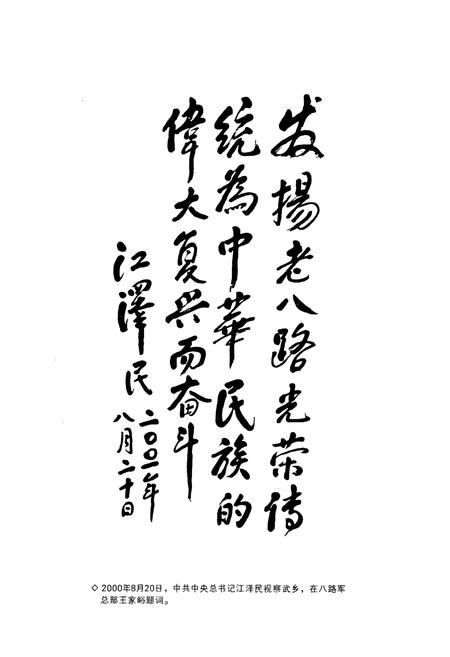 发揚老八路光荣传
统為中華民族的
偉大复兴而奋斗
江澤民
二〇〇一年
八月二十日
◇2000年8月20日，中共中央总书记江泽民视察武乡，在八路军
总部王家峪题词。